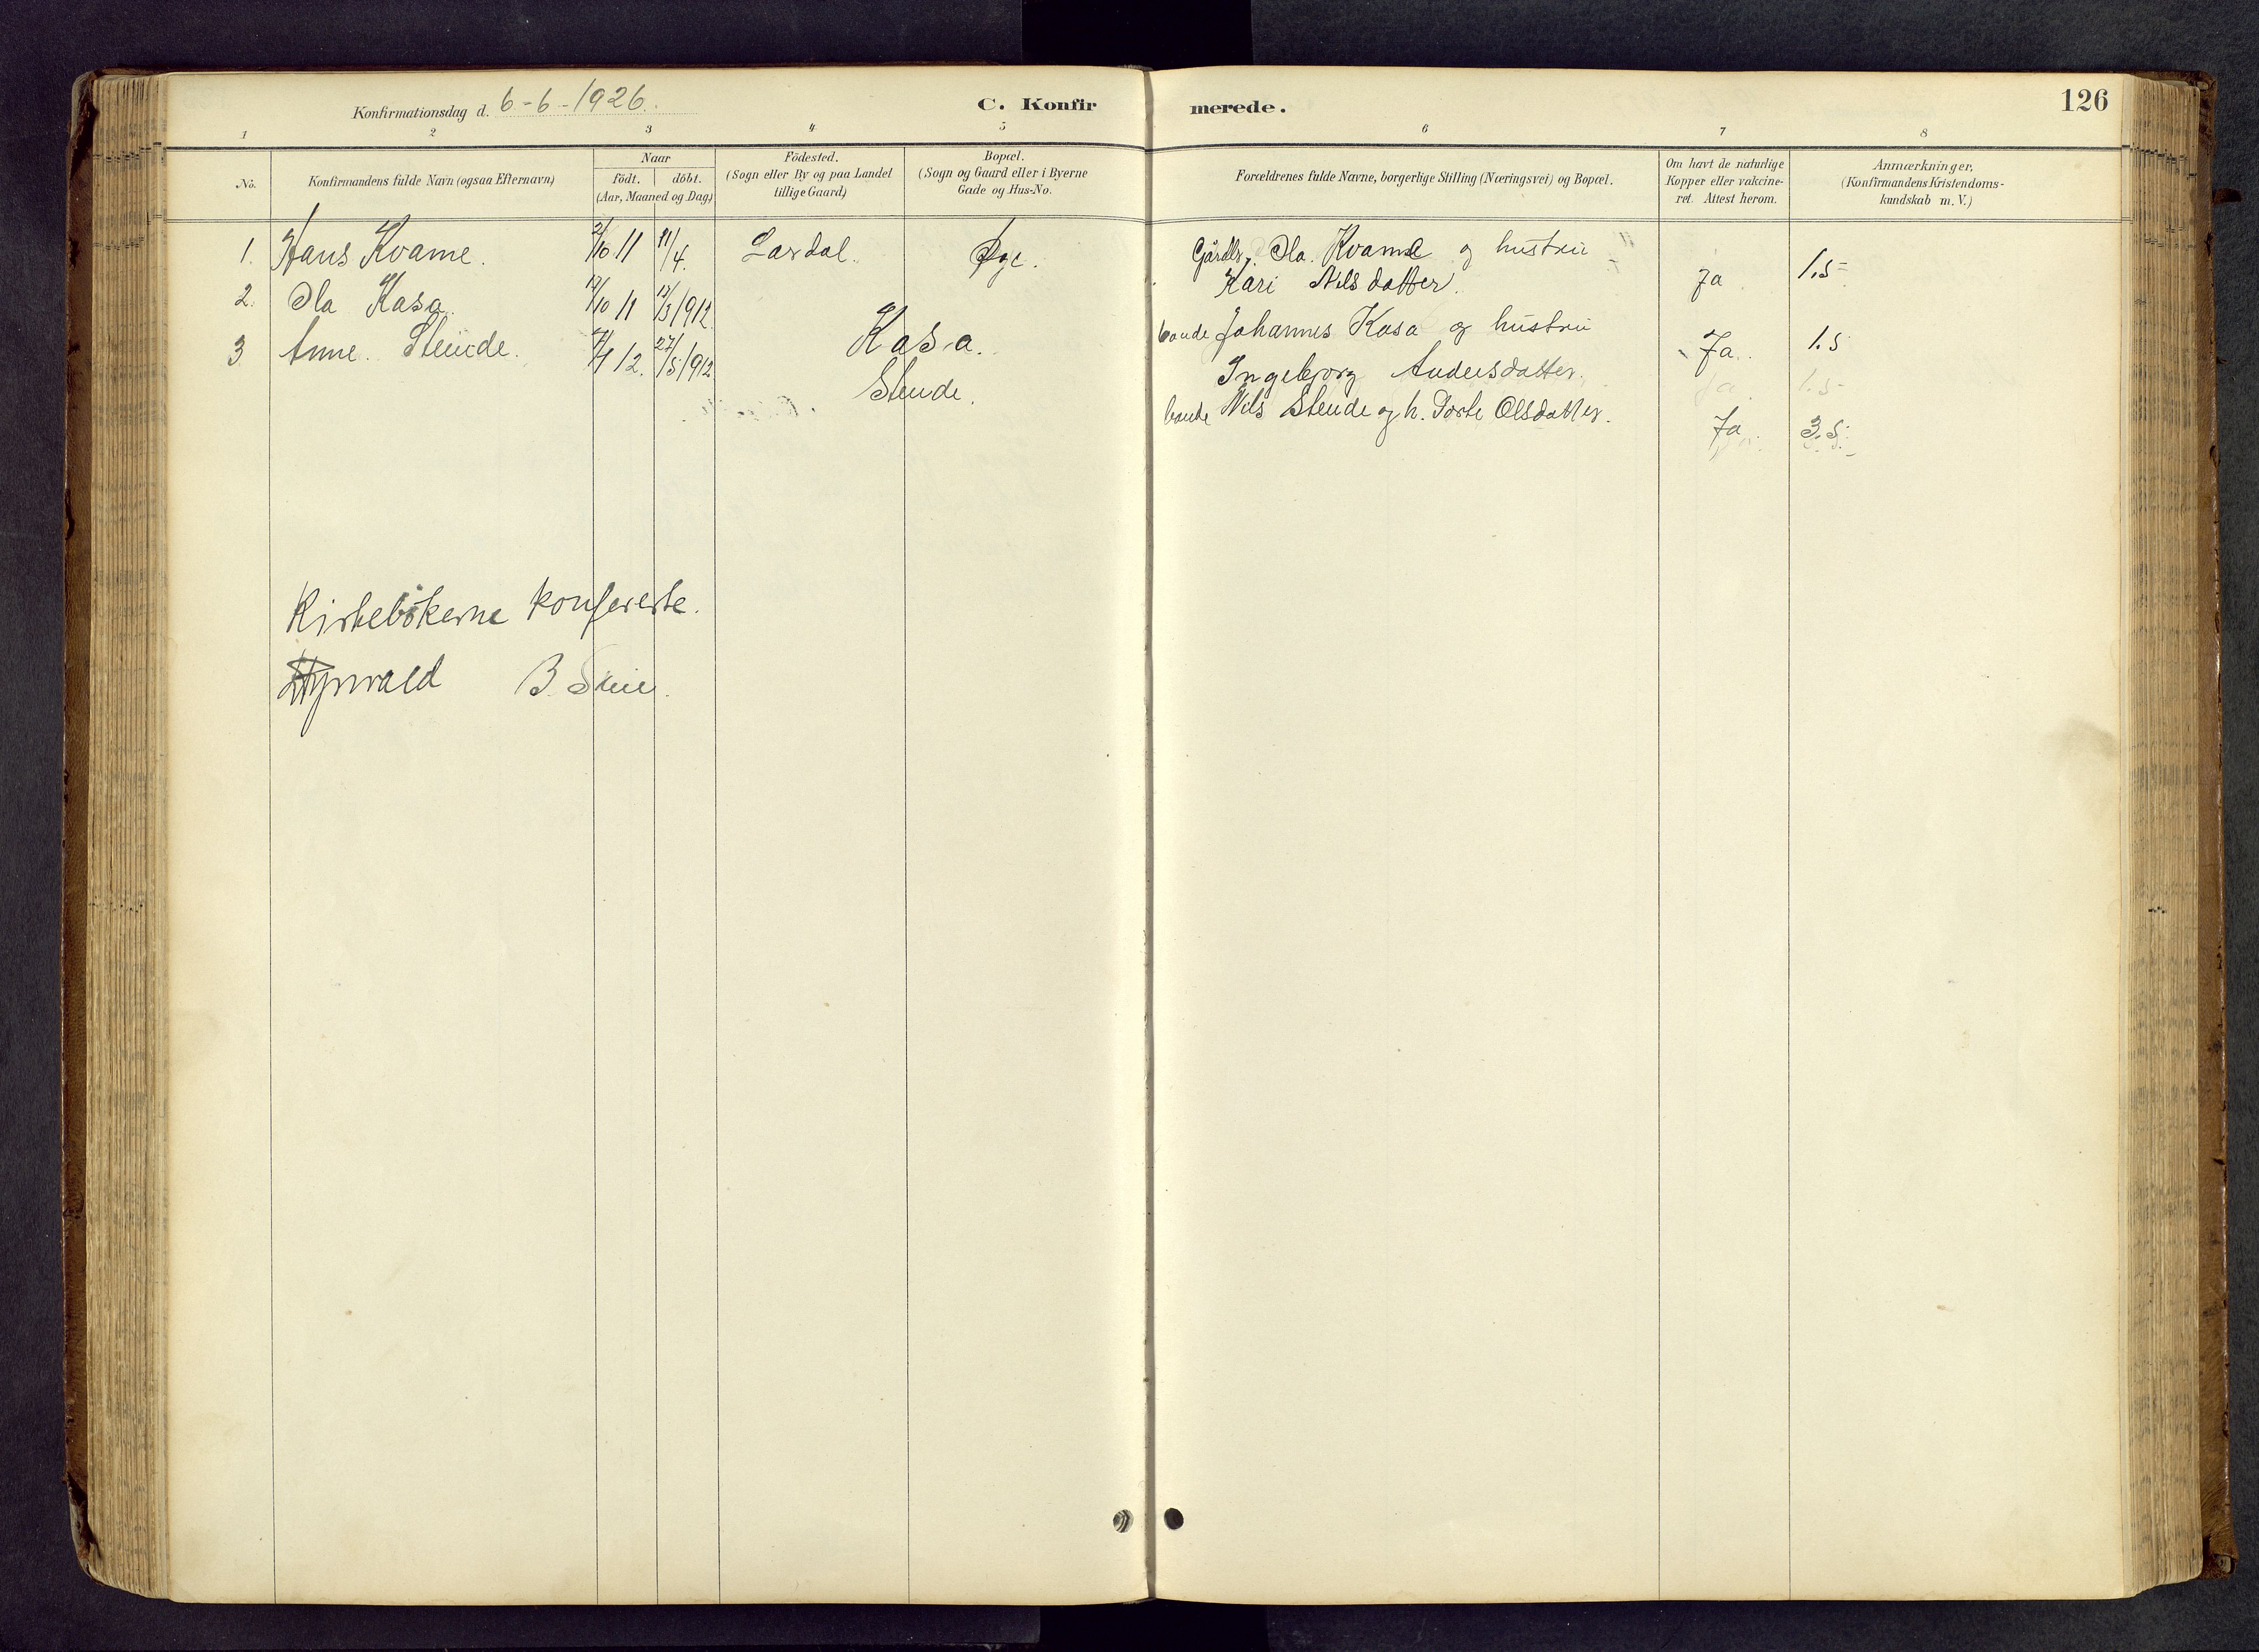 Konfirmationsdag d. 6-6-1926.
C. Konfirmerede.
126
1 2 3 4 5 6 7 8
No.
Konfirmandens fulde Navn (ogsaa Efternavn)
Naar
födt. döbt.
(Aar, Maaned og Dag)
Födested.
(Sogn eller By og paa Landet
tillige Gaard)
Bopæl.
(Sogn og Gaard eller i Byerne
Gade og Hus-No.
Forældrenes fulde Navne, borgerlige Stilling (Næringsvei) og Bopæl.
Om havt de naturlige
Kopper eller vakcine-
ret. Attest herom.
Anmærkninger,
(Konfirmandens Kristendoms-
kundskab m. V.)
1. Hans Kvame. 2/10 11 11/4. Lærdal. Øye. Gårdbr. Ola Kvame og hustru
Kari Nilsdatter. Ja 1.5
2. Ola Kasa 12/10 11 17/3 1912 Kasa. bonde Johannes Kasa og hustru
Ingebjorg Andersdatter. Ja. 1.5
3. Anne Stende. 1 12. 27/5 1912 Stende. bonde Nils Stende og h. Dorte Olsdatter. Ja. 3.5.
Kirkebökerne konfererte.
B.